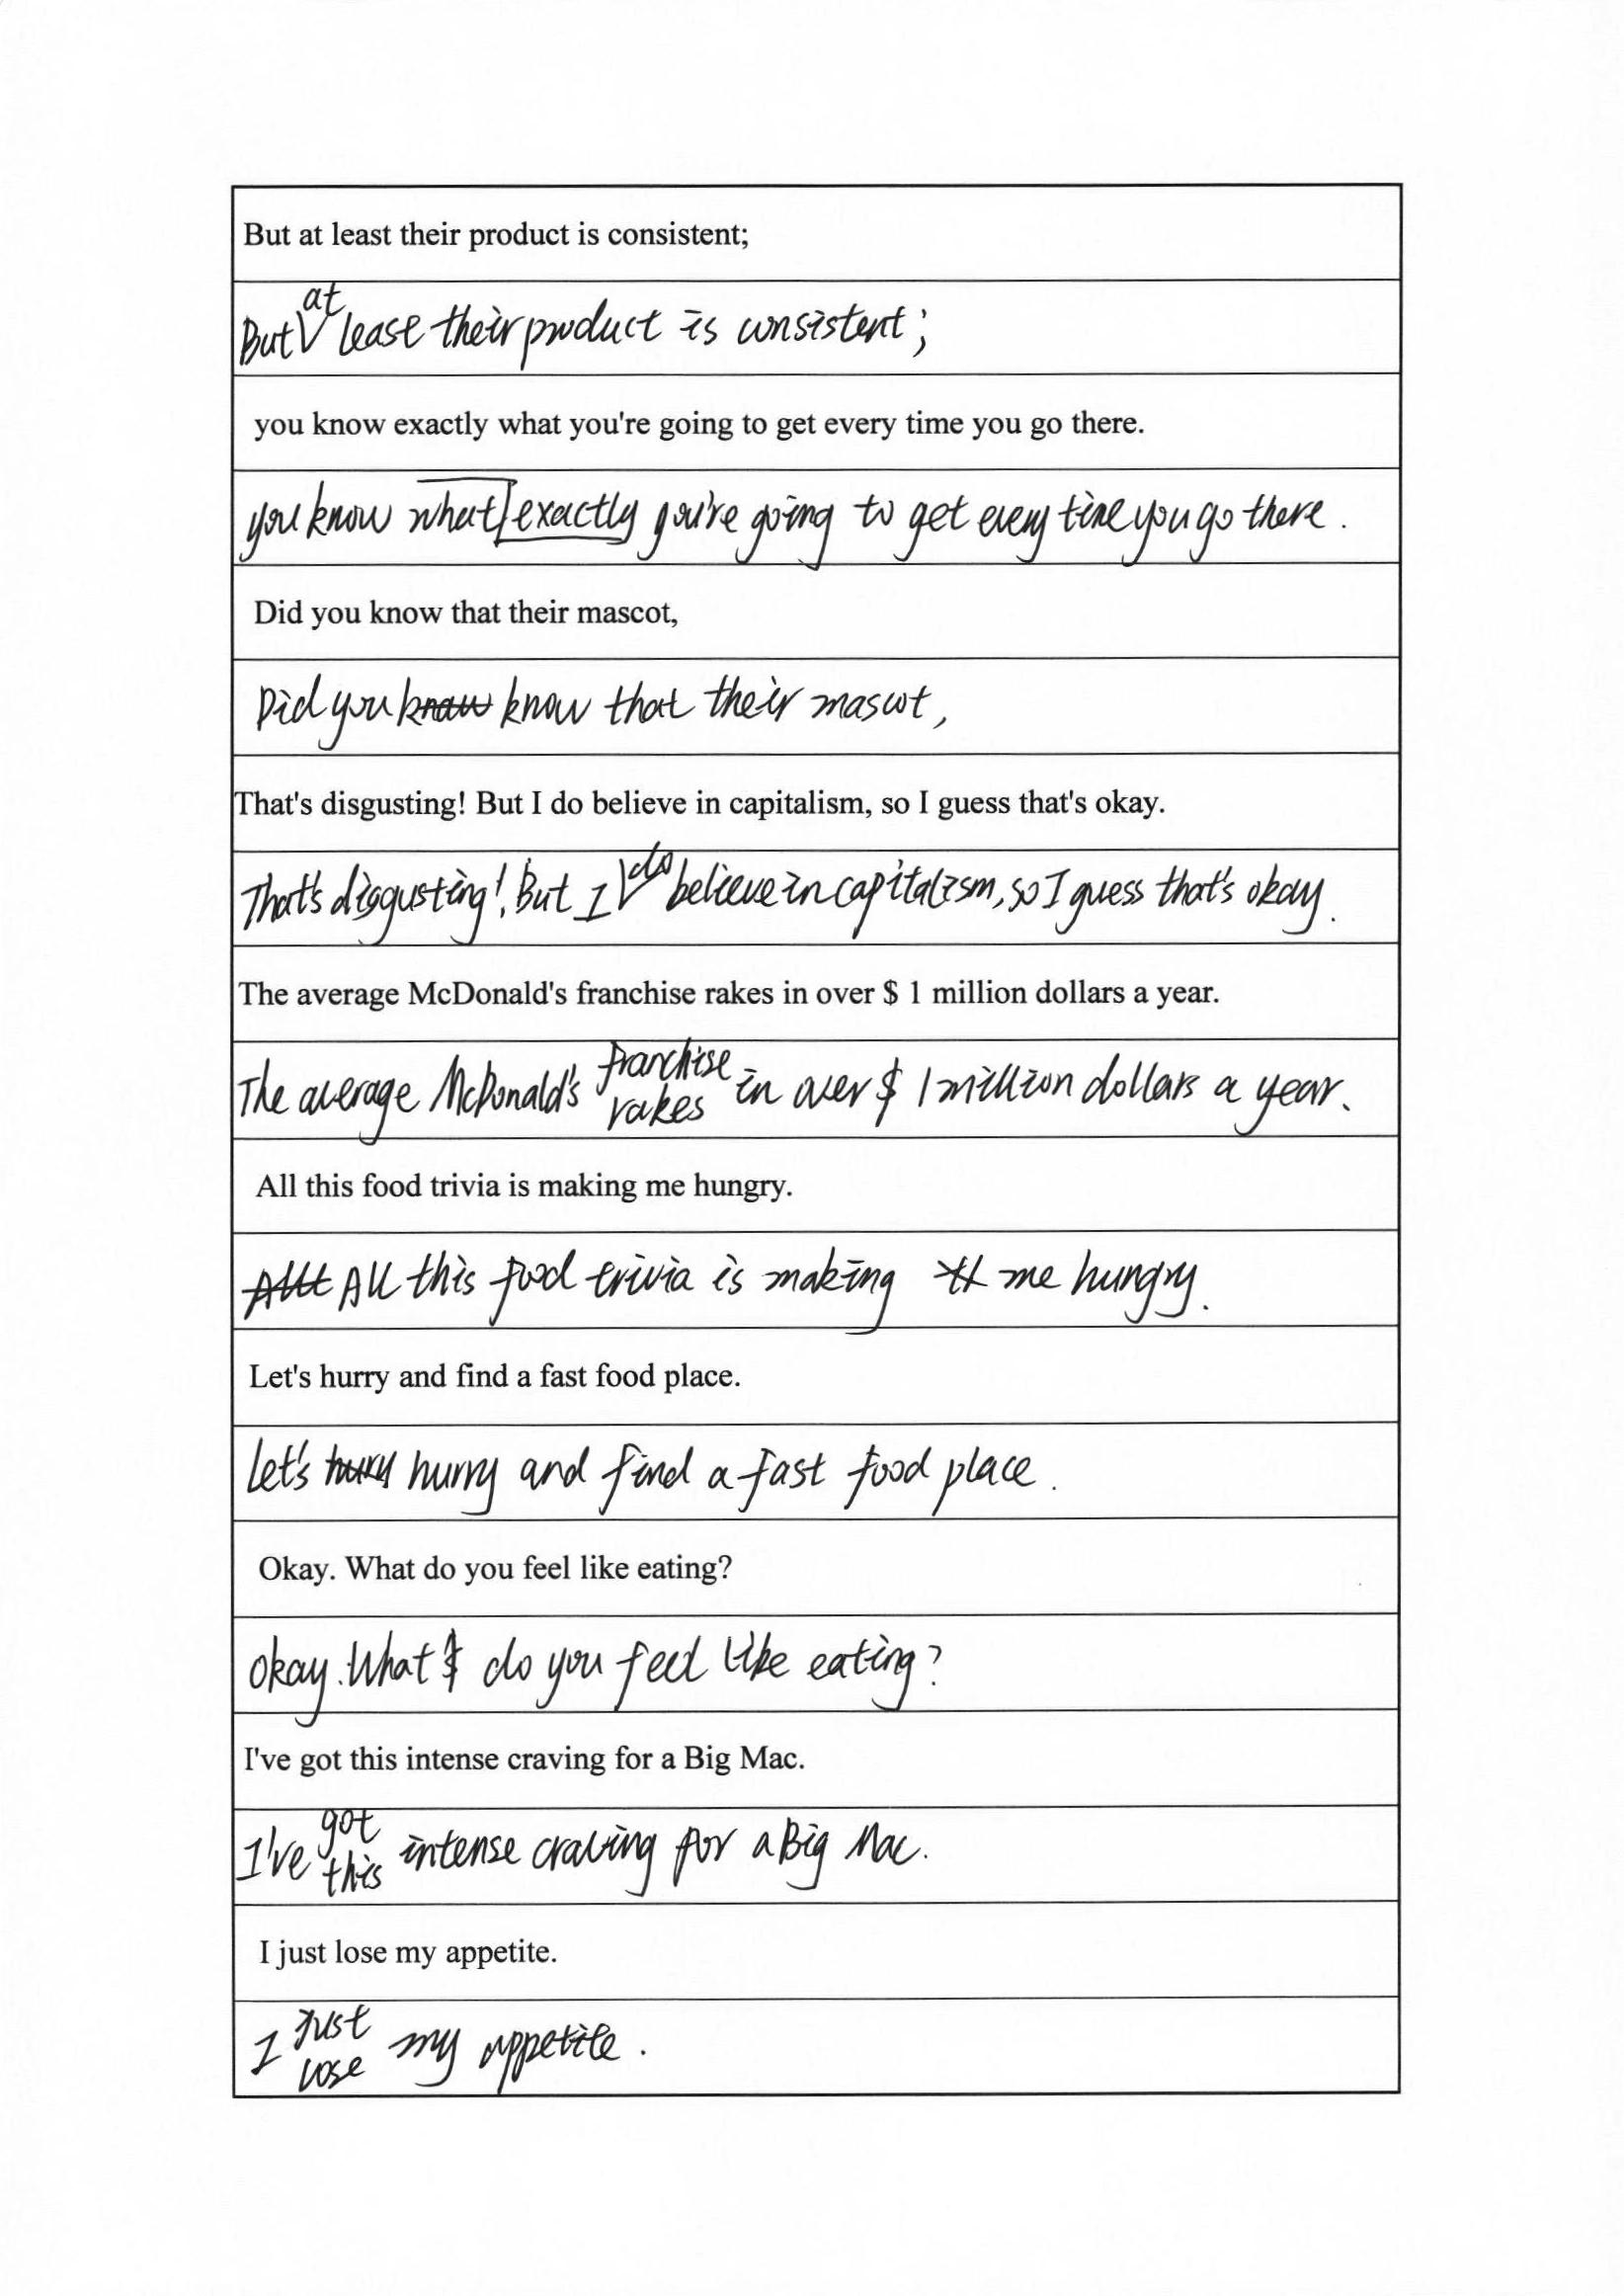 But at least their product is consistent;
But at lease their product is consistent;
you know exactly what you're going to get every time you go there.
you know exactly what you're going to get every time you go there.
Did you know that their mascot,
Did you know that their mascot,
That's disgusting! But I do believe in capitalism, so I guess that's okay.
That's disgusting! But I do believe in capitalism, so I guess that's okay.
The average McDonald's franchise rakes in over $ 1 million dollars a year.
The average McDonald's franchise rakes in over $ 1 million dollars a year.
All this food trivia is making me hungry.
All this food trivia is making me hungry.
Let's hurry and find a fast food place.
Let's hurry and find a fast food place.
Okay. What do you feel like eating?
okay. What do you feel like eating?
I've got this intense craving for a Big Mac.
I've got this intense craving for a Big Mac.
I just lose my appetite.
I just lose my appetite.